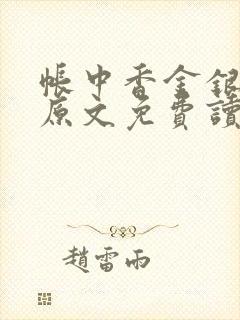 帳中香金銀
原文免費讀
趙雷雨